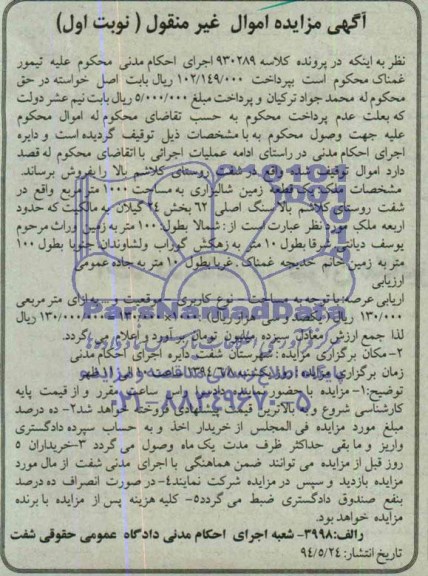 آگهی مزایده اموال غیر منقول ( نوبت اول)
نظر به اینکه در پرونده کلاسه ۹۳۰۲۸۹ اجرای احکام مدنی محکوم علیه تیمور
غمناک محکوم است بپرداخت ۱۰۲/۱۴۹/۰۰۰ ریال بابت اصل خواسته در حق
محکوم له محمد جواد ترکیان و پرداخت مبلغ ۵/۰۰۰/۰۰۰ ریال بابت نیم عشر دولت
که بعلت عدم پرداخت محکوم به حسب تقاضای محکوم له اموال محکوم
علیه جهت وصول محکوم به با مشخصات ذیل توقیف گردیده است و دایره
اجرای احکام مدنی در راستای ادامه عملیات اجرائی با تقاضای محکوم له قصد
دارد اموال توقیف شده واقع در شفت روستای کلاشم بالا را بفروش برساند.
مشخصات ملک یک قطعه زمین شالیزاری به مساحت ۱۰۰۰ متر مربع واقع در
شفت روستای کلاشم بالا سنگ اصلی ۶۲ بخش ۲۴ گیلان و مالکیت که حدود
اربعه ملک مورد نظر عبارت است از : شمالا بطول ۱۰۰ متر به زمین وراث مرحوم
یوسف دیانتی شرقا بطول ۱۰ متر به زهکش گوراب ولشاوندان جنوبا بطول ۱۰۰
متر به زمین خانم خدیجه غمناک . غربا بطول ۱۰ متر به جاده عمومی
ارزیابی
ارزیابی عرصه : با توجه به مساحت - نوع کاربری - موقعیت و ... به ازای متر مربعی
۱۳۰/۰۰۰ ریال (یکصد و سی هزار ریال) ۱۳۰/۰۰۰/۰۰۰ ریال
لذا جمع ارزش معادل سیزده میلیون تومان برآورد و اعلام می گردد.
۲- مکان برگزاری مزایده : شهرستان شفت دایره اجرای احکام مدنی
زمان برگزاری مزایده : روز یکشنبه ۱۳۹۴/۶/۸ ساعت ۱۰ الی ۱۱ ظهر
توضیح:۱- مزایده با حضور نماینده دادستان راس ساعت مقرر و از قیمت پایه
کارشناسی شروع و به بالاترین قیمت پیشنهادی فروخت خواهد شد۲- ده درصد
مبلغ مورد مزایده فی المجلس از خریدار اخذ و به حساب سپرده دادگستری
واریز و ما بقی حداکثر ظرف مدت یک ماه وصول می گردد ۳-خریداران ۵
روز قبل از مزایده می توانند ضمن هماهنگی با اجرای مدنی شفت از مال مورد
مزایده بازدید و سپس در مزایده شرکت نمایند۴- در صورت انصراف ده درصد
بنفع صندوق دادگستری ضبط می گردد۵- کلیه هزینه پس از مزایده با برنده
مزایده خواهد بود.
رالف:۳۹۹۸- شعبه اجرای احکام مدنی دادگاه عمومی حقوقی شفت
تاریخ انتشار: ۹۴/۵/۲۴
ParsNamadData
۰۲۱-۸۸۳۴۹۶۷۰-۵